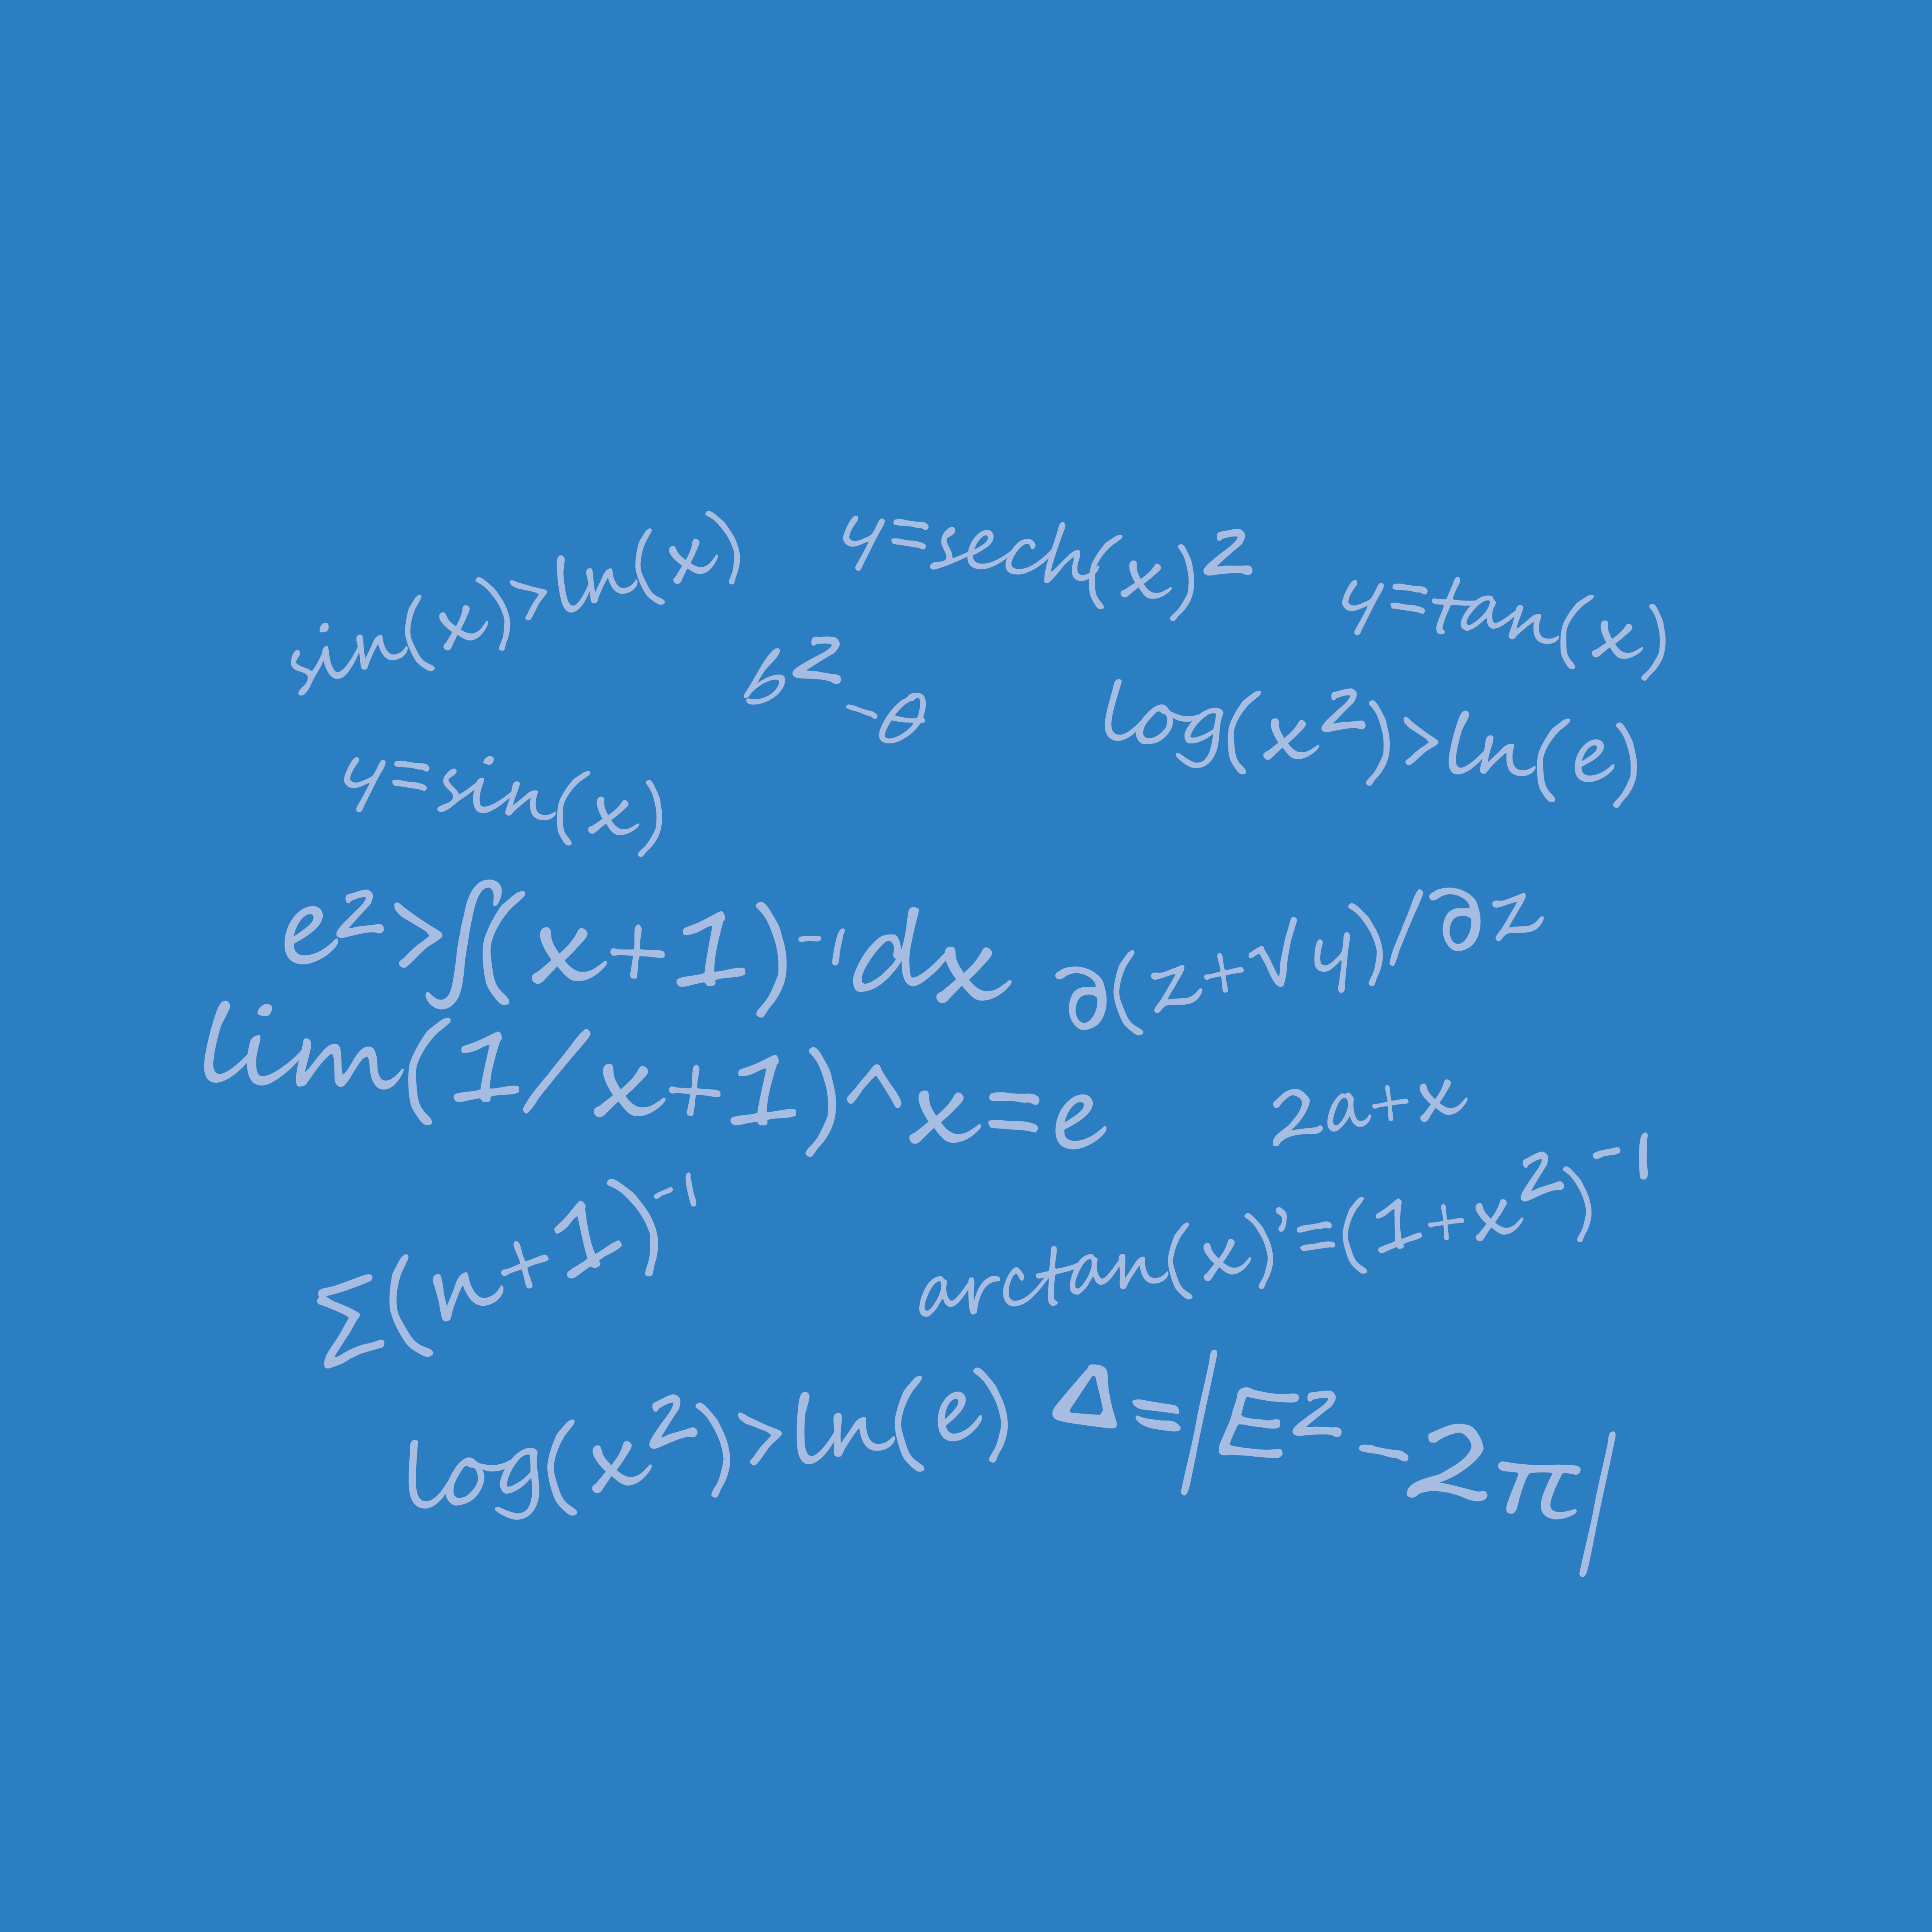 sin(x)>ln(x)
y=sech(x)2
y=tan(x)
b²-a
log(x²)>ln(e)
y=sin(x)
e²>∫(x+1)⁻¹dx
∂(z+√y)/∂z
lim(1/x+1)^x=e
2a+x
Σ(n+1)⁻¹
arctan(x)'=(1+x²)⁻¹
log(x²)>ln(e)
Δ=|E²-2π|